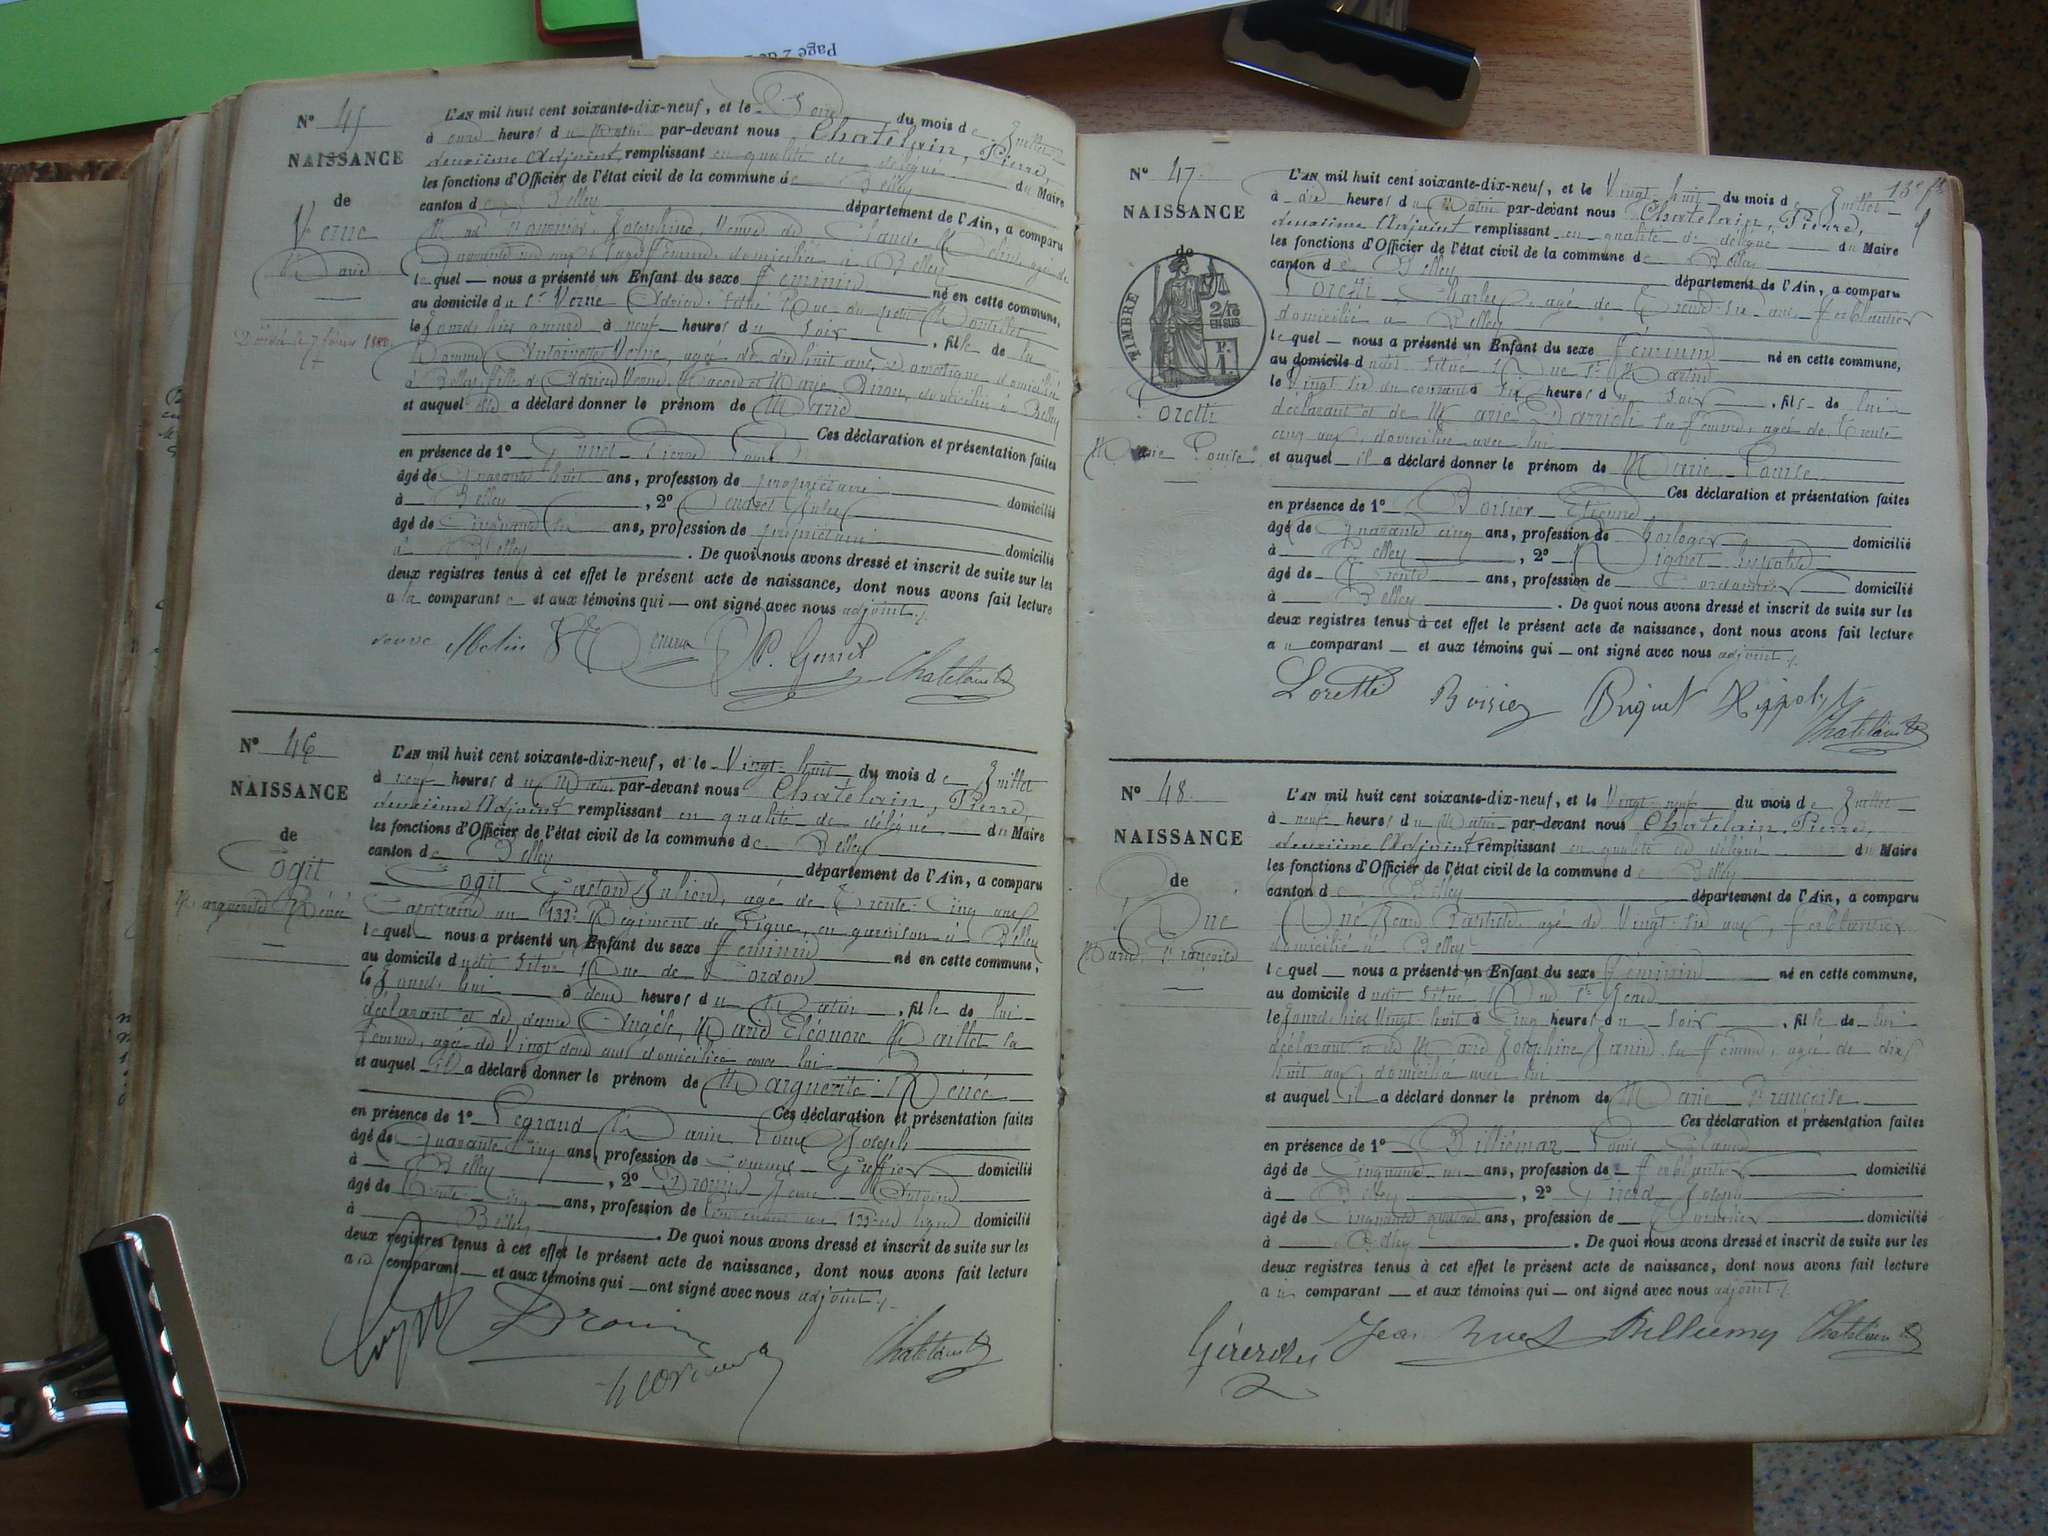 Page 2 de
N° 45
NAISSANCE
de
Verne
Marie
Décédée le 7 février 1880
L'AN mil huit cent soixante-dix-neuf, et le du mois de Juillet
à onze heures du Matin par-devant nous Chatelain, Pierre,
deuxième Adjoint remplissant en qualité de délégué du Maire
les fonctions d'Officier de l'état civil de la commune de Belley
canton de Belley département de l'Ain, a comparu
Joséphine, Veuve de Claude Melin, agée de
sage femme, domiciliée à Belley
lequel — nous a présenté un Enfant du sexe féminin né en cette commune,
au domicile du Sr Verne Adrien, situé Rue du
le Jourd'hui à neuf heures du soir, fille de la
nommée Antoinette Verne, agée de dix huit ans, domestique domiciliée
à Belley, fille d'Adrien Verne, et Marie domiciliés à Belley
et auquel elle a déclaré donner le prénom de Marie
Ces déclaration et présentation faites
en présence de 1° Pierre
âgé de Quarante huit ans, profession de propriétaire domicilié
à Belley, 2°
âgé de Cinquante six ans, profession de propriétaire domicilié
à Belley. De quoi nous avons dressé et inscrit de suite sur les
deux registres tenus à cet effet le présent acte de naissance, dont nous avons fait lecture
a la comparante et aux témoins qui — ont signé avec nous adjoint
veuve Melin Chatelain
N° 46
NAISSANCE
de
Cogit
Marguerite Rénée
L'AN mil huit cent soixante-dix-neuf, et le Vingt-huit du mois de Juillet
à neuf heures du Matin par-devant nous Chatelain, Pierre,
deuxième Adjoint remplissant en qualité de délégué du Maire
les fonctions d'Officier de l'état civil de la commune de Belley
canton de Belley département de l'Ain, a comparu
Cogit Gaston Julien, agé de Trente-Cinq ans,
Capitaine au 133e Régiment de Ligne, en garnison à Belley
lequel — nous a présenté un Enfant du sexe féminin né en cette commune,
au domicile dudit situé Rue de Cordon
le Jourd'hui à deux heures du Matin, fille de lui
déclarant et de dame Angèle, Marie Eléonore Maillet sa
femme, agée de Vingt deux ans domiciliée avec lui
et auquel il a déclaré donner le prénom de Marguerite-Rénée
Ces déclaration et présentation faites
en présence de 1° Legrand Marin Louis Joseph
âgé de Quarante Cinq ans, profession de Commis-Greffier domicilié
à Belley, 2° Drouin
âgé de Trente-Cinq ans, profession de Lieutenant au 133e de ligne domicilié
à Belley. De quoi nous avons dressé et inscrit de suite sur les
deux registres tenus à cet effet le présent acte de naissance, dont nous avons fait lecture
a comparant — et aux témoins qui — ont signé avec nous adjoint
Cogit Drouin Legrand Chatelain
N° 47
NAISSANCE
de
TIMBRE
2/10
EN SUS
Loretti
Marie Louise
13e ft
L'AN mil huit cent soixante-dix-neuf, et le Vingt huit du mois de Juillet
à dix heures du Matin par-devant nous Chatelain, Pierre,
deuxième Adjoint remplissant en qualité de délégué du Maire
les fonctions d'Officier de l'état civil de la commune de Belley
canton de Belley département de l'Ain, a comparu
Loretti Charles, agé de Trente-six ans, Ferblantier
domicilié à Belley
lequel — nous a présenté un Enfant du sexe féminin né en cette commune,
au domicile dudit situé Rue St Martin
le Vingt six du courant à six heures du soir, fils de lui
déclarant et de Marie sa femme, agée de Trente
cinq ans, domiciliée avec lui
et auquel il a déclaré donner le prénom de Marie-Louise
Ces déclaration et présentation faites
en présence de 1° Boisier Etienne
âgé de Quarante cinq ans, profession de horloger domicilié
à Belley, 2° Briquet Hippolite
âgé de Trente ans, profession de Cordonnier domicilié
à Belley. De quoi nous avons dressé et inscrit de suite sur les
deux registres tenus à cet effet le présent acte de naissance, dont nous avons fait lecture
a u comparant — et aux témoins qui — ont signé avec nous adjoint
Loretti Boisier Briquet Hippolyte Chatelain
N° 48
NAISSANCE
de
Rué
Marie Françoise
L'AN mil huit cent soixante-dix-neuf, et le Vingt-neuf du mois de Juillet
à neuf heures du Matin par-devant nous Chatelain, Pierre,
deuxième Adjoint remplissant en qualité de délégué du Maire
les fonctions d'Officier de l'état civil de la commune de Belley
canton de Belley département de l'Ain, a comparu
Rué Jean Baptiste, agé de Vingt-six ans, Ferblantier
domicilié à Belley
lequel — nous a présenté un Enfant du sexe féminin né en cette commune,
au domicile dudit situé Rue St Jean
le Jour de hier Vingt-huit à Cinq heures du soir, fille de lui
déclarant et de Marie Joséphine Janin sa femme, agée de dix
huit ans, domiciliée avec lui
et auquel il a déclaré donner le prénom de Marie-Françoise
Ces déclaration et présentation faites
en présence de 1° Billiémaz Louis Claude
âgé de Cinquante ans, profession de Ferblantier domicilié
à Belley, 2° Joseph
âgé de Cinquante quatre ans, profession de domicilié
à Belley. De quoi nous avons dressé et inscrit de suite sur les
deux registres tenus à cet effet le présent acte de naissance, dont nous avons fait lecture
a u comparant — et aux témoins qui — ont signé avec nous adjoint
Jean Rué Billiemaz Chatelain